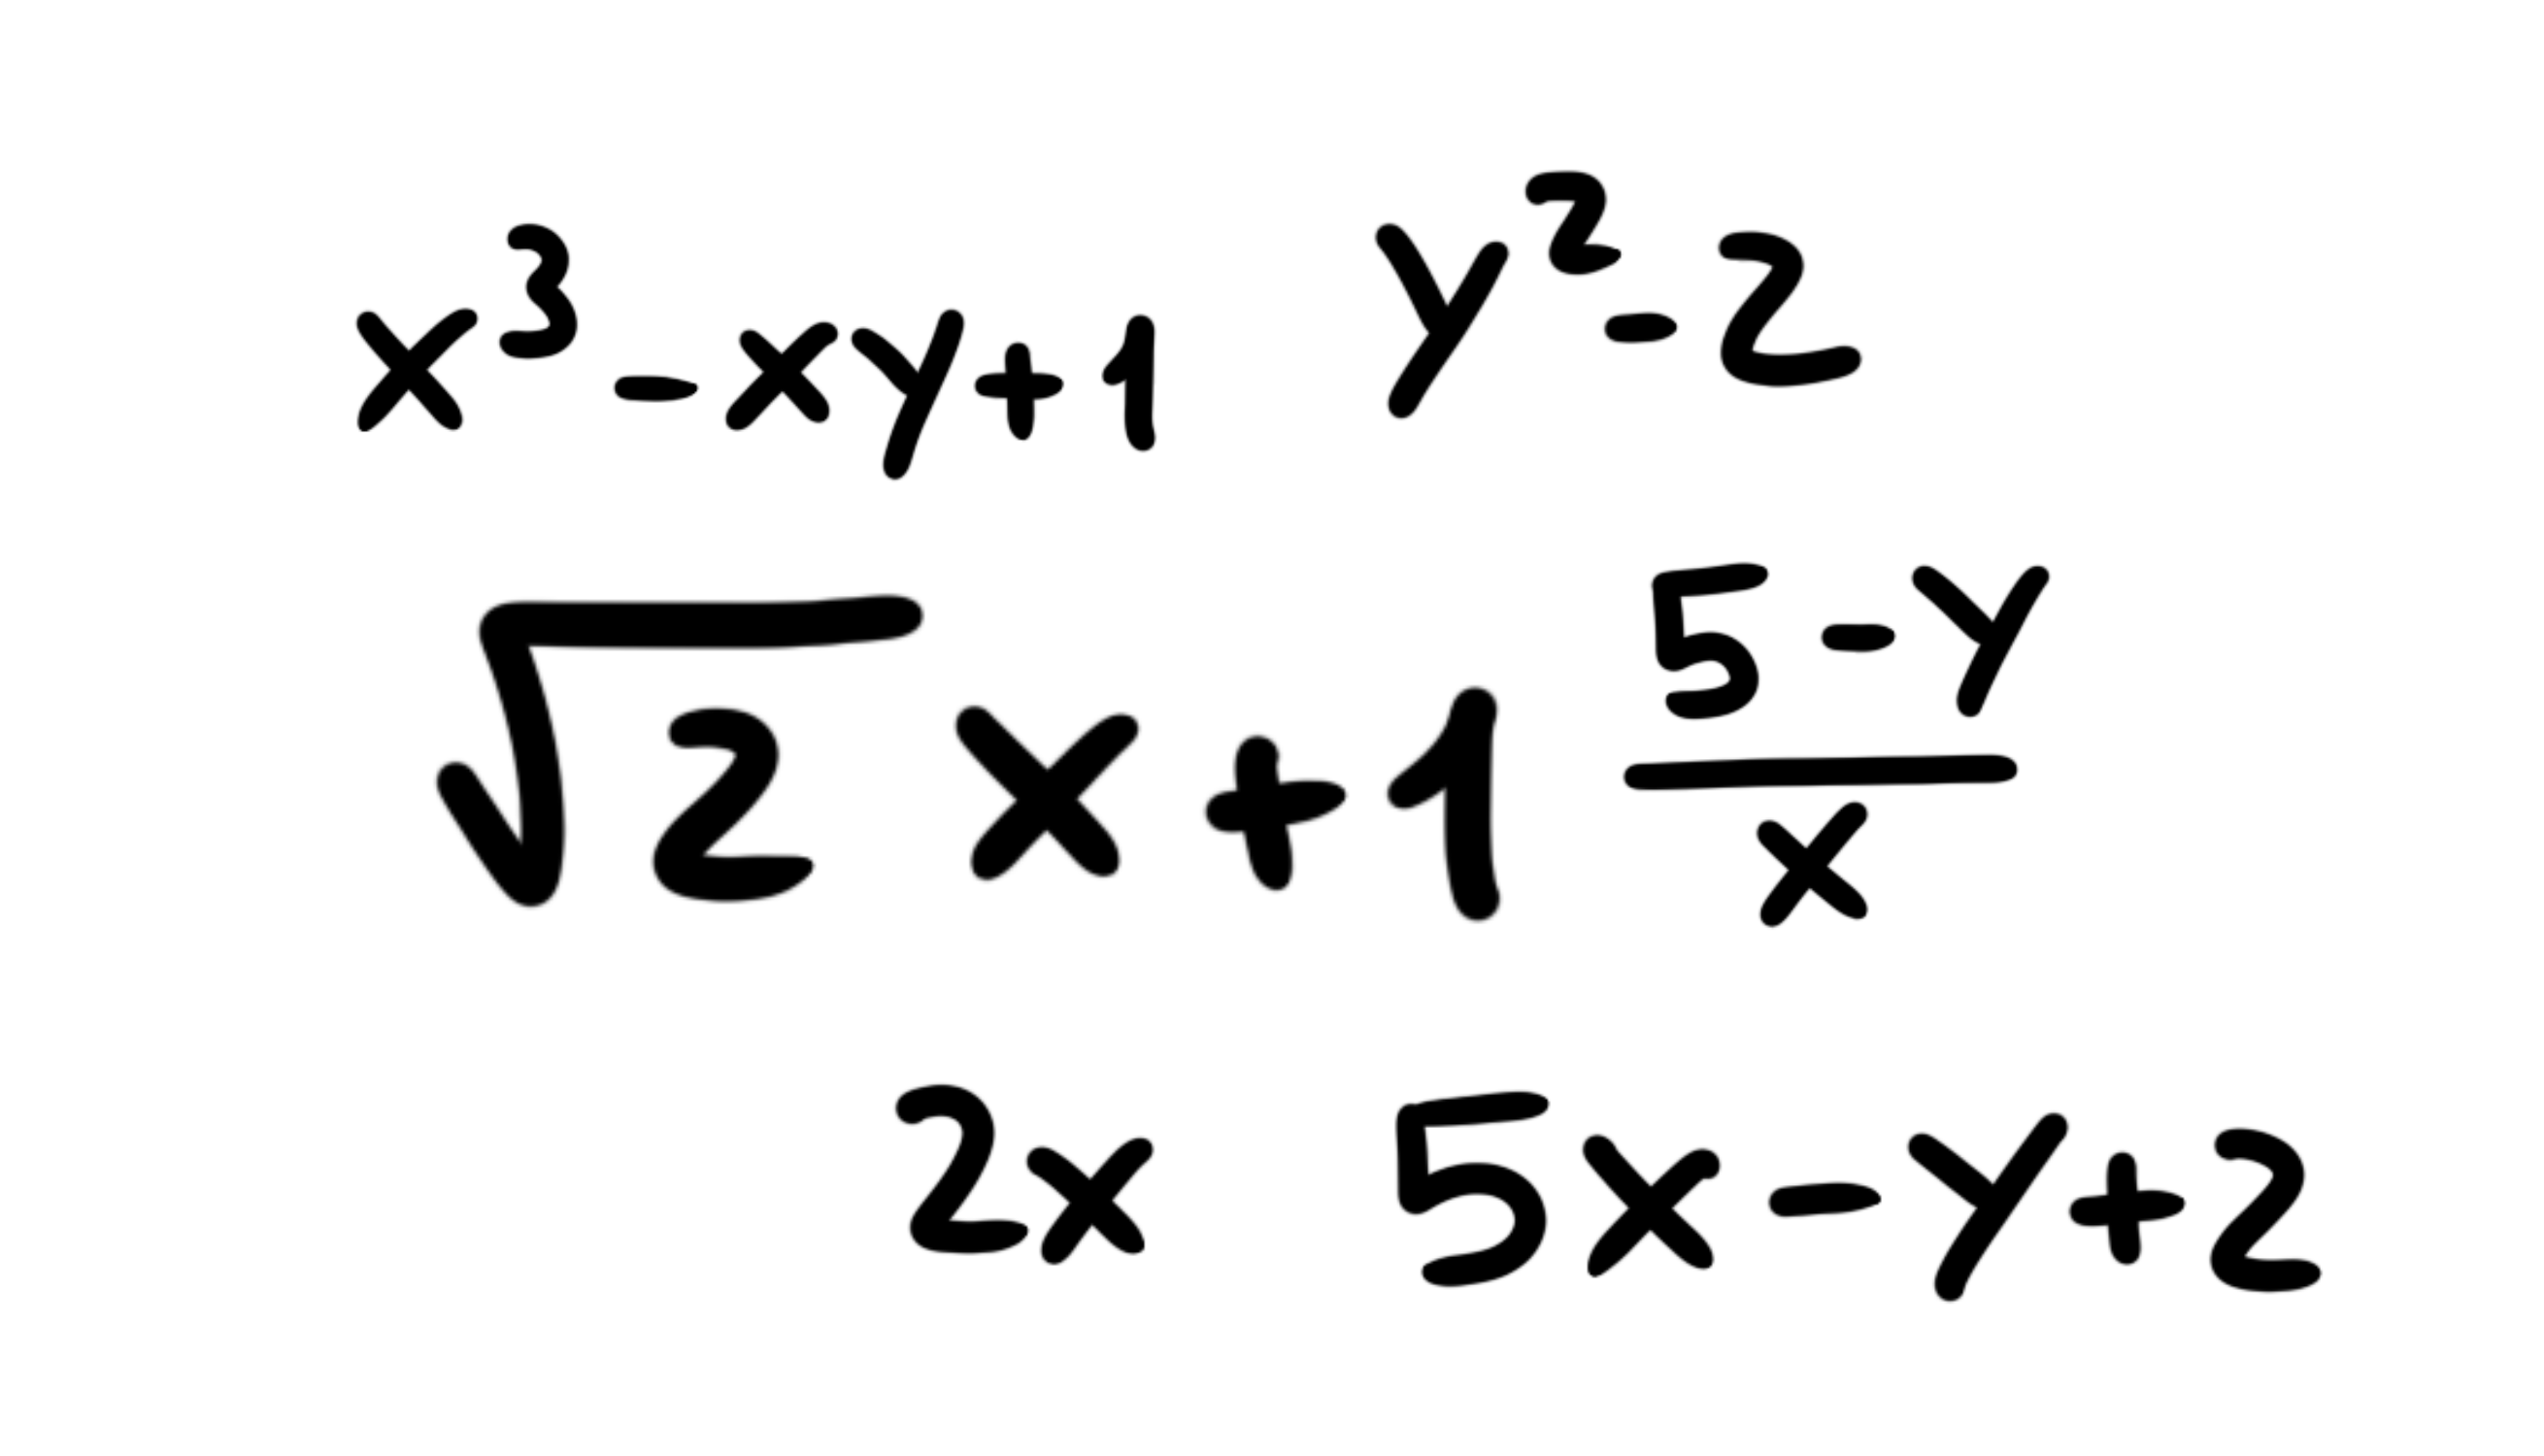 x³-xy+1 y²-2
√2 x+1 (5-y)/x
2x 5x-y+2